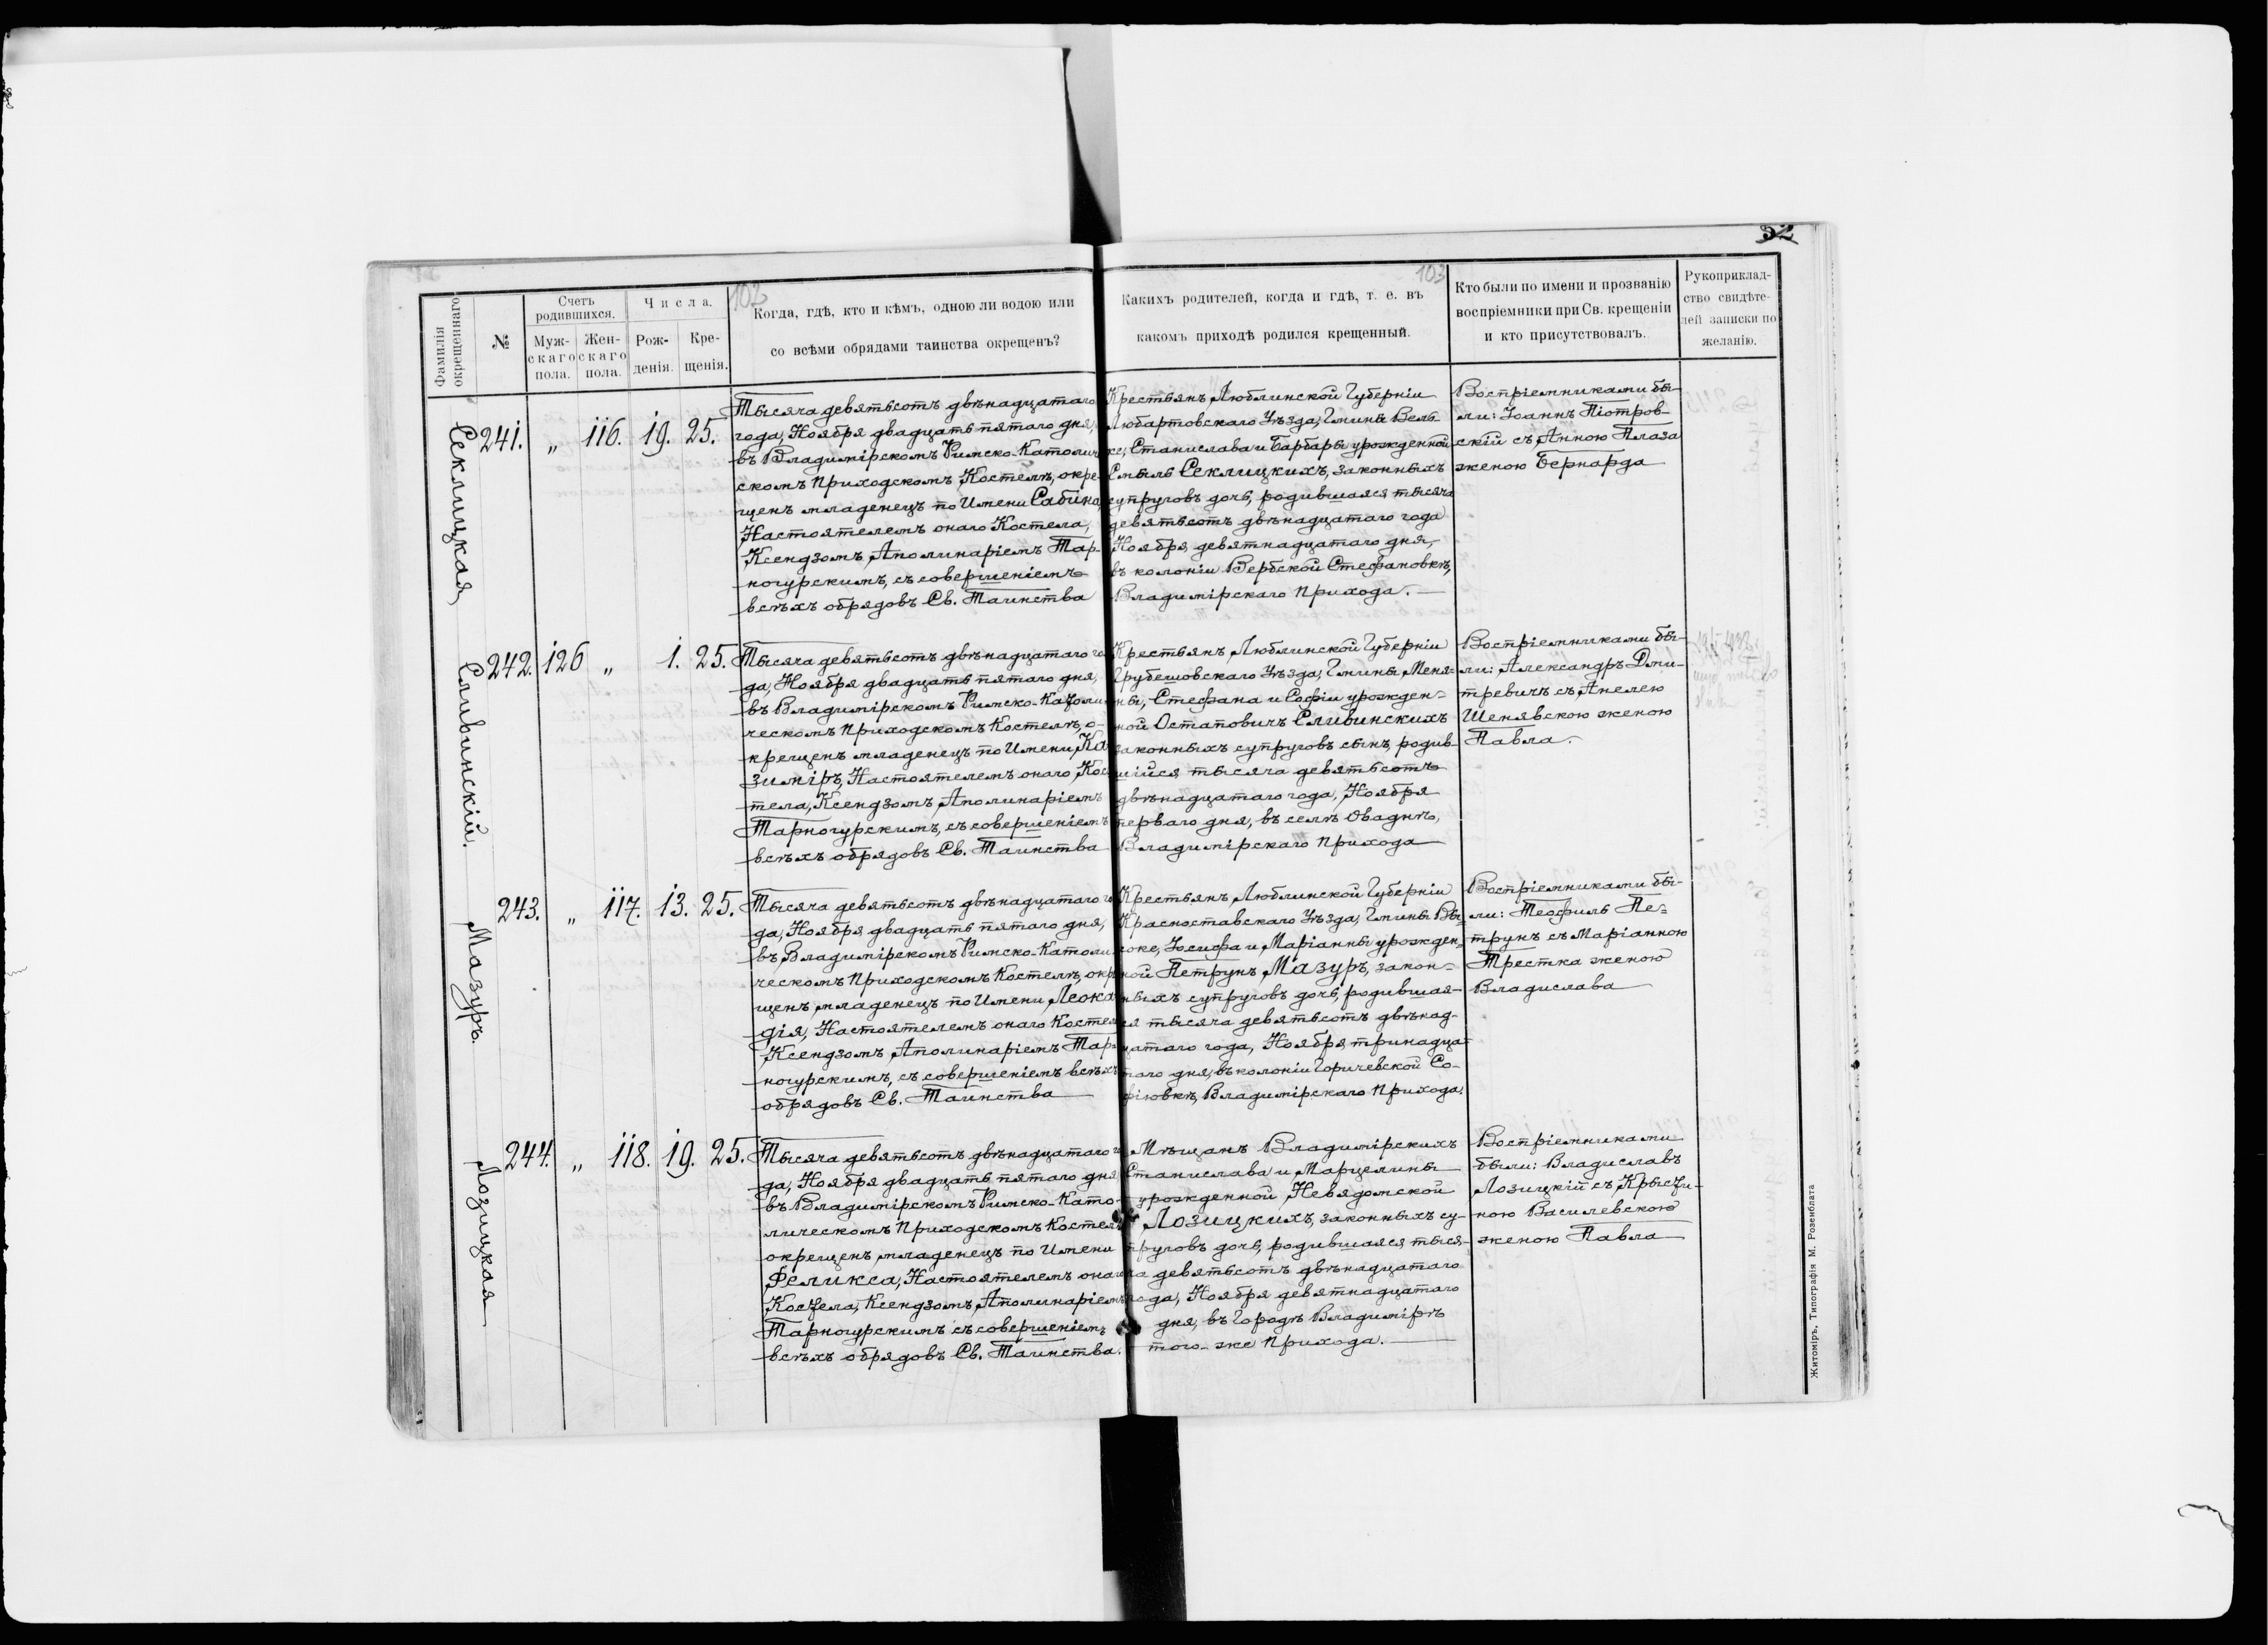 52
102
103
Фамилія окрещеннаго
№
Счетъ родившихся.
Муж-скаго пола.
Жен-скаго пола.
Числа.
Рож-денія.
Кре-щенія.
Когда, гдѣ, кто и кѣмъ, одною ли водою или
со всѣми обрядами таинства окрещенъ?
Какихъ родителей, когда и гдѣ, т. е. въ
какомъ приходѣ родился крещенный.
Кто были по имени и прозванію
воспріемники при Св. крещеніи
и кто присутствовалъ.
Рукоприклад-
ство свидѣте-
лей записки по
желанію.
Секлицкая
241. „ 116. 19. 25.
Тысяча девятьсотъ двѣнадцатаго
года, Ноября двадцать пятаго дня,
въ Владимірскомъ Римско-Католиче
скомъ приходскомъ Костелѣ, окре-
щенъ младенецъ по Имени Сабина,
Настоятелемъ онаго Костела,
Ксендзомъ Аполинаріемъ Тар-
ногурскимъ, съ совершеніемъ
всѣхъ обрядовъ Св. Таинства
Крестьянъ Люблинской Губерніи
Любартовскаго Уѣзда, Гмины Вель-
ке, Станислава и Барбары урожденной
Смыль Секлицкихъ, законныхъ
супруговъ дочь, родившаяся тысяча
девятьсотъ двѣнадцатаго года
Ноября девятнадцатаго дня,
въ колоніи Вербской Стефановкѣ,
Владимірскаго прихода.
Воспріемниками бы-
ли: Іоаннъ Піотров-
скій съ Анною Плаза
женою Бернарда
Сливинскій.
242. 126 „ 1. 25.
Тысяча девятьсотъ двѣнадцатаго го
да, Ноября двадцать пятаго дня,
въ Владимірскомъ Римско-Католи
ческомъ приходскомъ Костелѣ, о-
крещенъ младенецъ по Имени Ка
зиміръ, Настоятелемъ онаго Кос
тела, Ксендзомъ Аполинаріемъ
Тарногурскимъ, съ совершеніемъ
всѣхъ обрядовъ Св. Таинства
Крестьянъ Люблинской Губерніи
Грубешовскаго Уѣзда, Гмины Меня-
ны, Стефана и Софіи урожден-
ной Остаповичъ Сливинскихъ
законныхъ супруговъ сынъ, родив-
шійся тысяча девятьсотъ
двѣнадцатаго года, Ноября
перваго дня, въ селѣ Оваднѣ,
Владимірскаго прихода
Воспріемниками бы-
ли: Александръ Дми-
тревичъ съ Анелею
Шенявскою женою
Павла.
Мазуръ.
243. „ 117. 13. 25.
Тысяча девятьсотъ двѣнадцатаго го
да, Ноября двадцать пятаго дня,
въ Владимірскомъ Римско-Католи
ческомъ приходскомъ Костелѣ, окре
щенъ младенецъ по Имени Леока
дія, Настоятелемъ онаго Костела
Ксендзомъ Аполинаріемъ Тар-
ногурскимъ, съ совершеніемъ всѣхъ
обрядовъ Св. Таинства
Крестьянъ Люблинской Губерніи
Красноставскаго Уѣзда, Гмины Вы-
соке, Іосифа и Маріанны урожден-
ной Петрунъ Мазуръ, закон-
ныхъ супруговъ дочь, родившая-
ся тысяча девятьсотъ двѣнад-
цатаго года, Ноября тринадца-
таго дня, въ колоніи Горичевской Со-
фіовкѣ, Владимірскаго прихода.
Воспріемниками бы-
ли: Теофиль Пе-
трунъ съ Маріанною
Трестка женою
Владислава
Лозицкая
244. „ 118. 19. 25.
Тысяча девятьсотъ двѣнадцатаго го
да, Ноября двадцать пятаго дня
въ Владимірскомъ Римско-Като-
лическомъ приходскомъ Костелѣ
окрещенъ младенецъ по Имени
Феликса, Настоятелемъ онаго
Костела, Ксендзомъ Аполинаріемъ
Тарногурскимъ съ совершеніемъ
всѣхъ обрядовъ Св. Таинства.
Мѣщанъ Владимірскихъ
Станислава и Марцелины
урожденной Невядомской
Лозицкихъ, законныхъ су-
пруговъ дочь, родившаяся тыся-
ча девятьсотъ двѣнадцатаго
года, Ноября девятнадцатаго
дня, въ Городѣ Владимірѣ
того-же прихода.
Воспріемниками
были: Владиславъ
Лозицкій съ Крысти-
ною Василевскою
женою Павла
Житоміръ, Типографія М. Розенблата